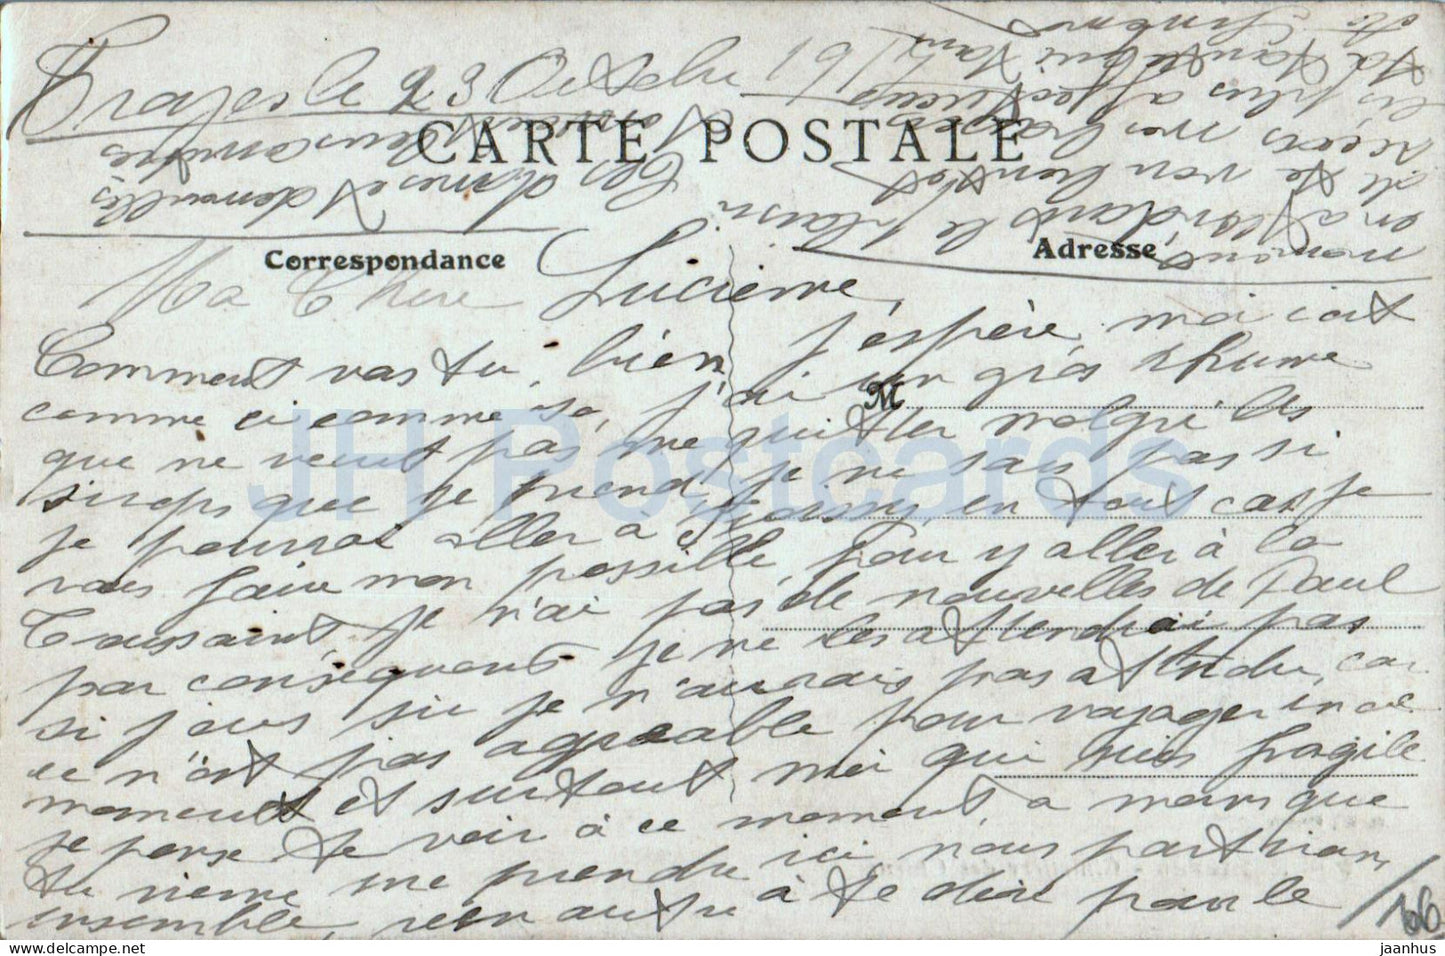 Troyes le 23 Octobre 1917
CARTE POSTALE
Correspondance
Adresse
Ma Chère Lucienne,
Comment vas tu, bien j'espère, moi c'est
comme ci comme ça, j'ai un gros rhume
que ne veut pas me quitter malgré les
sirops que je prend, je ne sais pas si
je pourrai aller à en tout cas je
vais faire mon possible pour y aller à la
Toussaint, je n'ai pas de nouvelles de Paul
par conséquent je ne les attendrai pas
si j'avais su je n'aurais pas attendu, car
ce n'est pas agréable pour voyager en ce
moment et surtout moi qui suis fragile
je pense te voir à ce moment, a moins que
tu vienne me prendre ici nous partirions
ensemble, rien autre à te dire pour le
moment
en attendant le plaisir
de te voir bientôt
reçois mes baisers
les plus affectueux
Ta
M
166
JH Postcards
jaanhus — www.delcampe.net